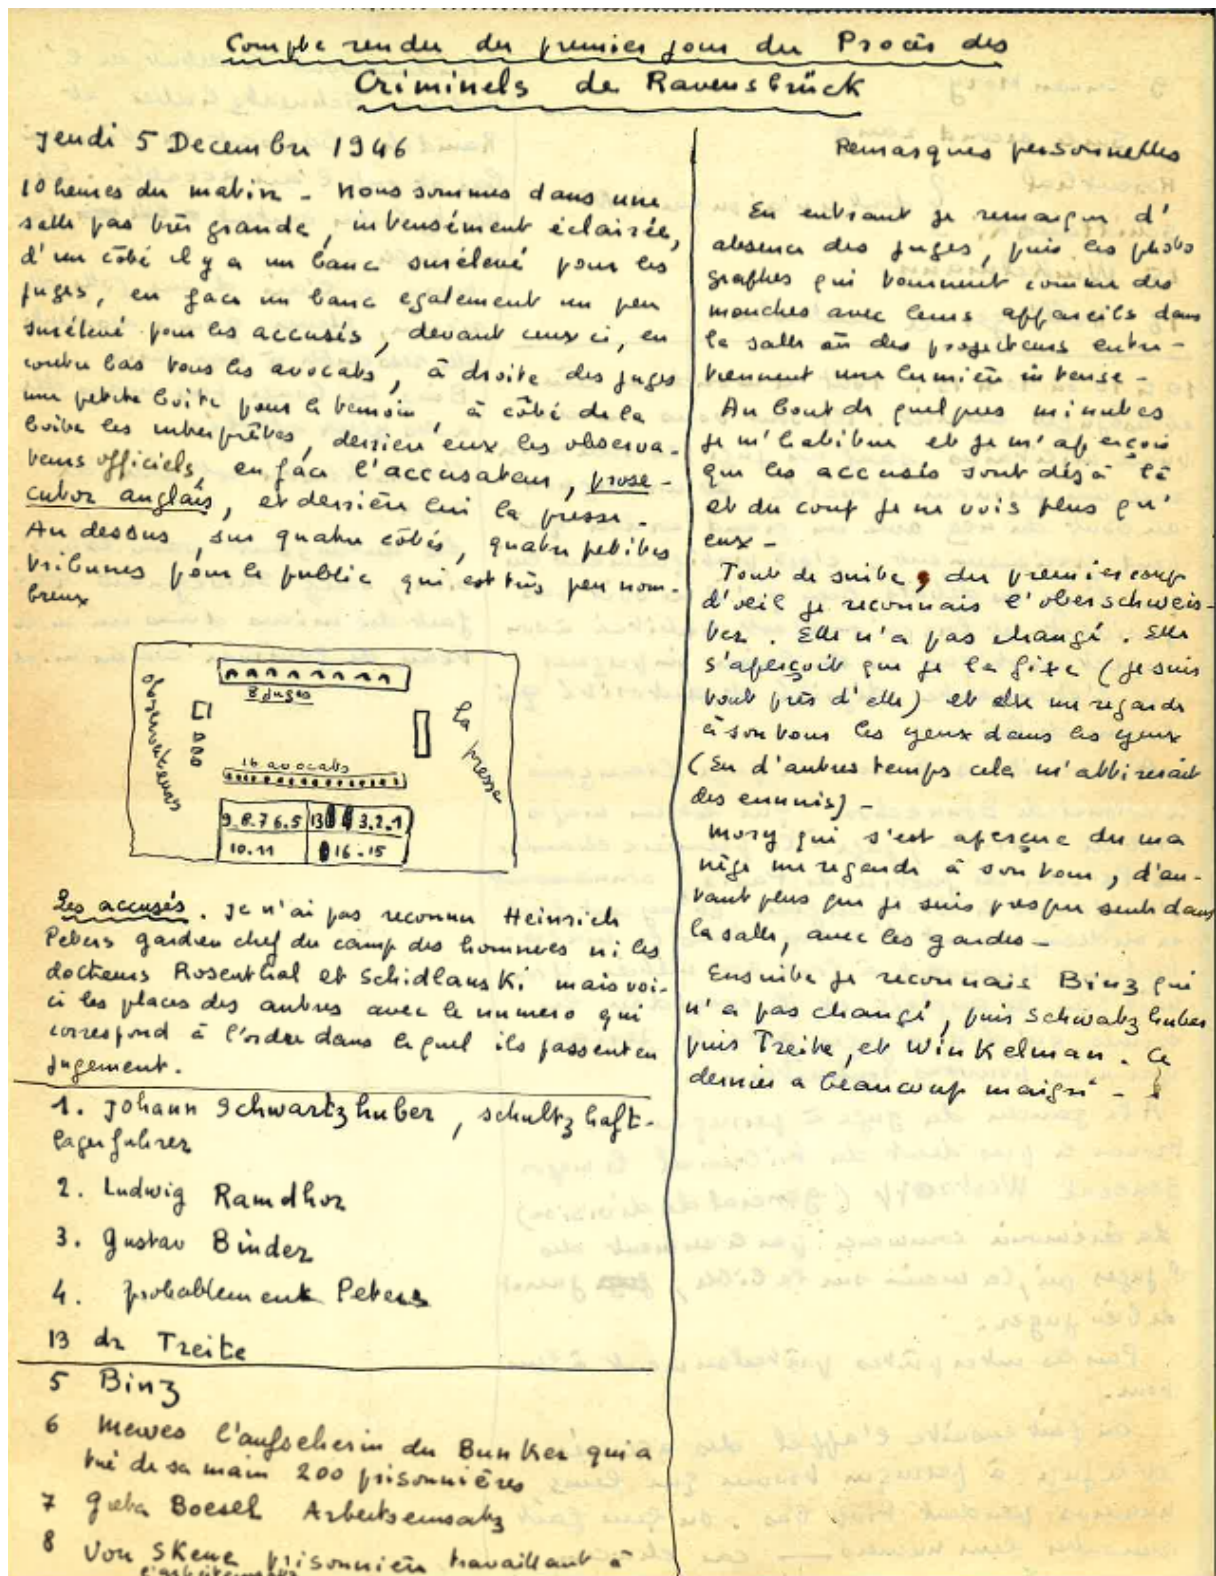 Compte rendu du premier jour du Procès des
Criminels de Ravensbrück
Jeudi 5 Decembre 1946
10 heures du matin - Nous sommes dans une
salle pas très grande, intensément éclairée,
d'un côté il y a un banc surélevé pour les
juges, en face un banc egalement un peu
surélevé pour les accusés, devant ceux ci, en
contre bas tous les avocats, à droite des juges
une petite boite pour le temoin, à côté de la
boite les interprêtes, derrière eux les observa-
teurs officiels, en face l'accusateur, prose-
cutor anglais, et derrière lui la presse.
Au dessus, sur quatre côtés, quatre petites
tribunes pour le public qui est très peu nom-
breux
8 juges
observateurs
la presse
16 avocats
9.8.7.6.5 13 3.2.1
10.11 16.15
Les accusés. Je n'ai pas reconnu Heinrich
Peters gardien chef du camp des hommes ni les
docteurs Rosenthal et Schidlauski mais voi-
ci les places des autres avec le numero qui
correspond à l'ordre dans lequel ils passent en
jugement.
1. Johann Schwartzhuber, schultzhaft-
lagerfuhrer
2. Ludwig Ramdhor
3. Gustav Binder
4. probablement Peters
13 dr Treite
5 Binz
6 Mewes l'aufseherin du Bunker qui a
tué de sa main 200 prisonnières
7 Greta Boesel Arbeitseinsatz
8 Von Skene prisonnière travaillant à
l'arbeitseinsatz
Remarques personnelles
En entrant je remarque l'
absence des juges, puis les photo
graphes qui tournent comme des
mouches avec leurs appareils dans
la salle où des projecteurs entre-
tiennent une lumière intense -
Au bout de quelques minutes
je m'habitue et je m'aperçois
que les accusés sont déjà là
et du coup je ne vois plus qu'
eux -
Tout de suite, du premier coup
d'oeil je reconnais l'oberschweis-
ter. Elle n'a pas changé. Elle
s'aperçoit que je la fixe (je suis
tout près d'elle) et elle me regarde
à son tour les yeux dans les yeux
(En d'autres temps cela m'attirerait
des ennuis) -
Mory qui s'est aperçue du ma
nège me regarde à son tour, d'au-
tant plus que je suis presque seule dans
la salle, avec les gardes -
Ensuite je reconnais Binz qui
n'a pas changé, puis Schwatzhuber
puis Treite, et Winkelman. Ce
dernier a beaucoup maigri -